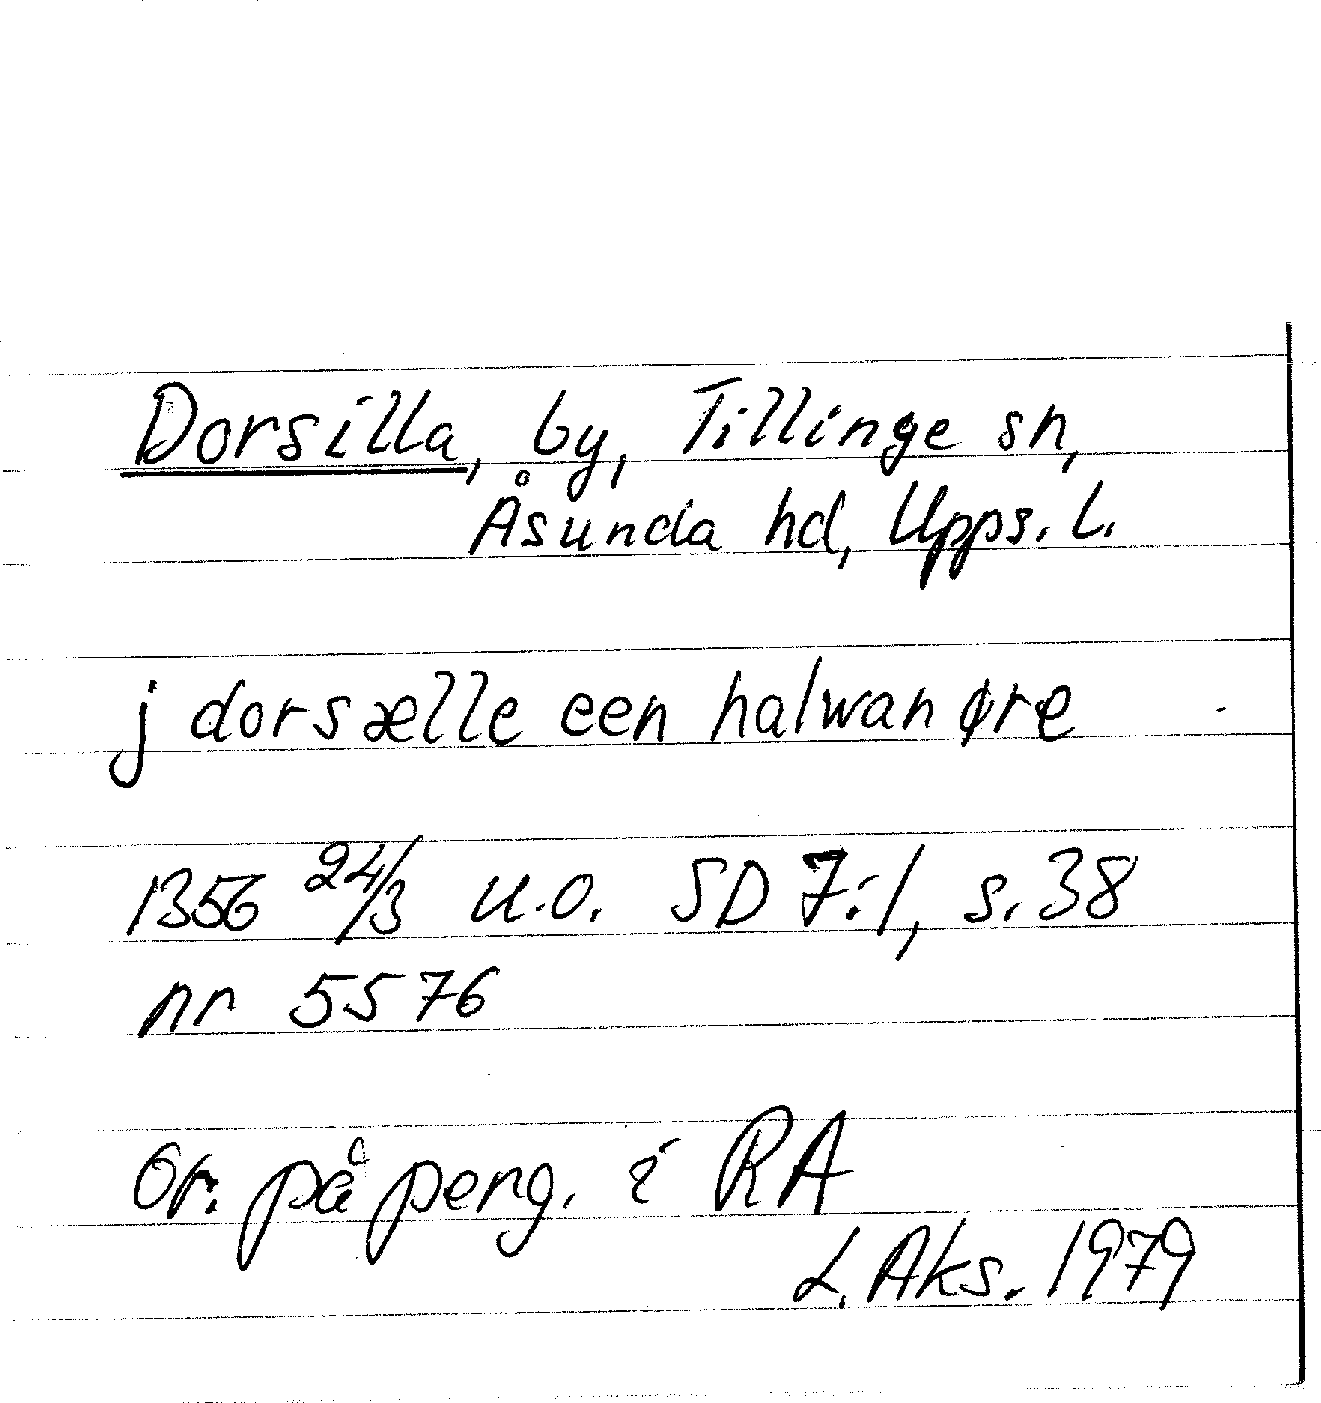 Dorsilla, by, Tillinge sn,
Åsunda hd, Upps. l.
j dorsælle een halwan øre
1356 24/3 u.o. SD 7:1, s. 38
nr 5576
Or. på perg. i RA
L. Aks. 1979